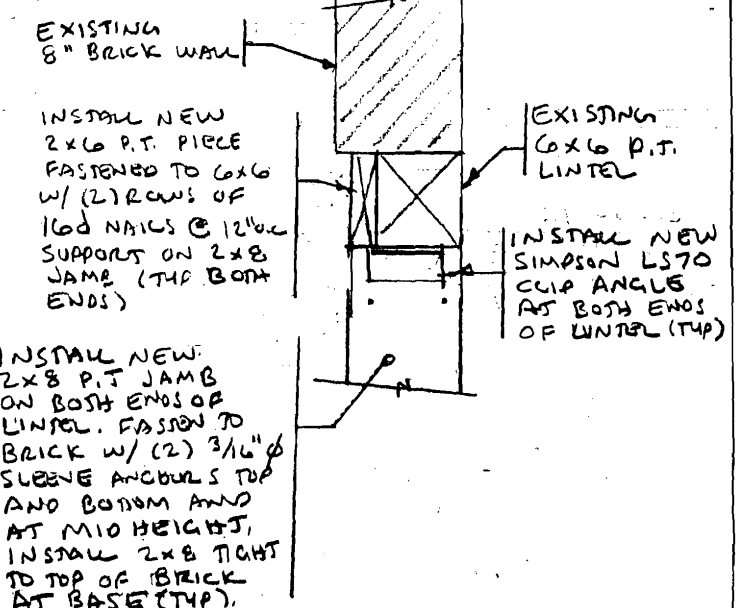 EXISTING
8" BRICK WALL
INSTALL NEW
2x6 P.T. PIECE
FASTENED TO 6x6
W/ (2) ROWS OF
16d NAILS @ 12"o.c
SUPPORT ON 2x8
JAMB (TYP BOTH
ENDS)
EXISTING
6x6 P.T.
LINTEL
INSTALL NEW
SIMPSON LS70
CLIP ANGLE
AT BOTH ENDS
OF LINTEL (TYP)
INSTALL NEW
2x8 P.T JAMB
ON BOTH ENDS OF
LINTEL. FASTEN TO
BRICK W/ (2) 3/16" ø
SLEEVE ANCHORS TOP
AND BOTTOM AND
AT MID HEIGHT,
INSTALL 2x8 TIGHT
TO TOP OF BRICK
AT BASE (TYP).